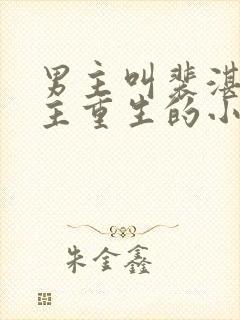 男主叫裴湛
主重生的小
朱金鑫